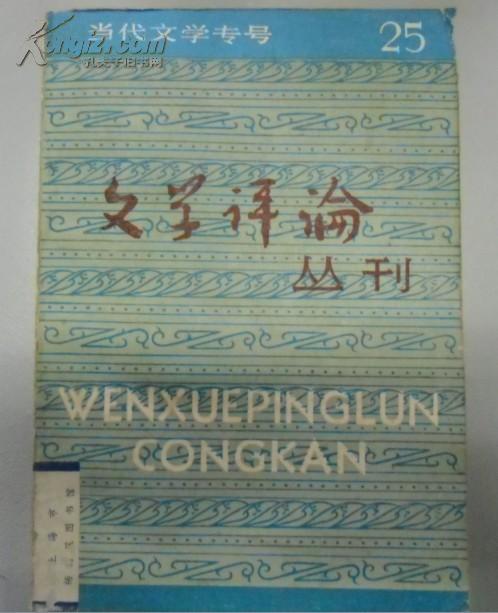 当代文学专号 25
Kongfz.com
孔夫子旧书网
文学评論
丛刊
WENXUEPINGLUN
CONGKAN
上海市
图书馆